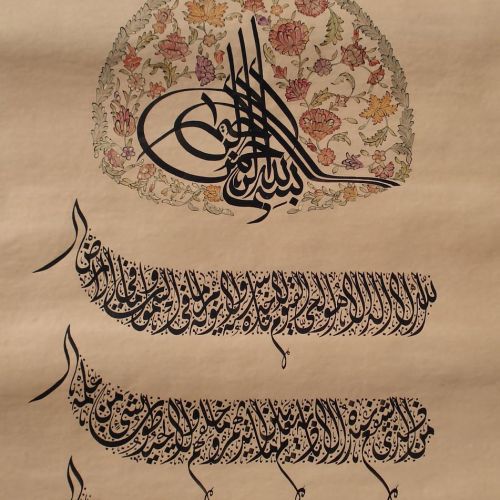 بسم الله الرحمن الرحيم
الله لا اله الا هو الحي القيوم لا تأخذه سنة ولا نوم له ما في السموات وما في الارض
من ذا الذي يشفع عنده الا باذنه يعلم ما بين ايديهم وما خلفهم ولا يحيطون بشئ من علمه